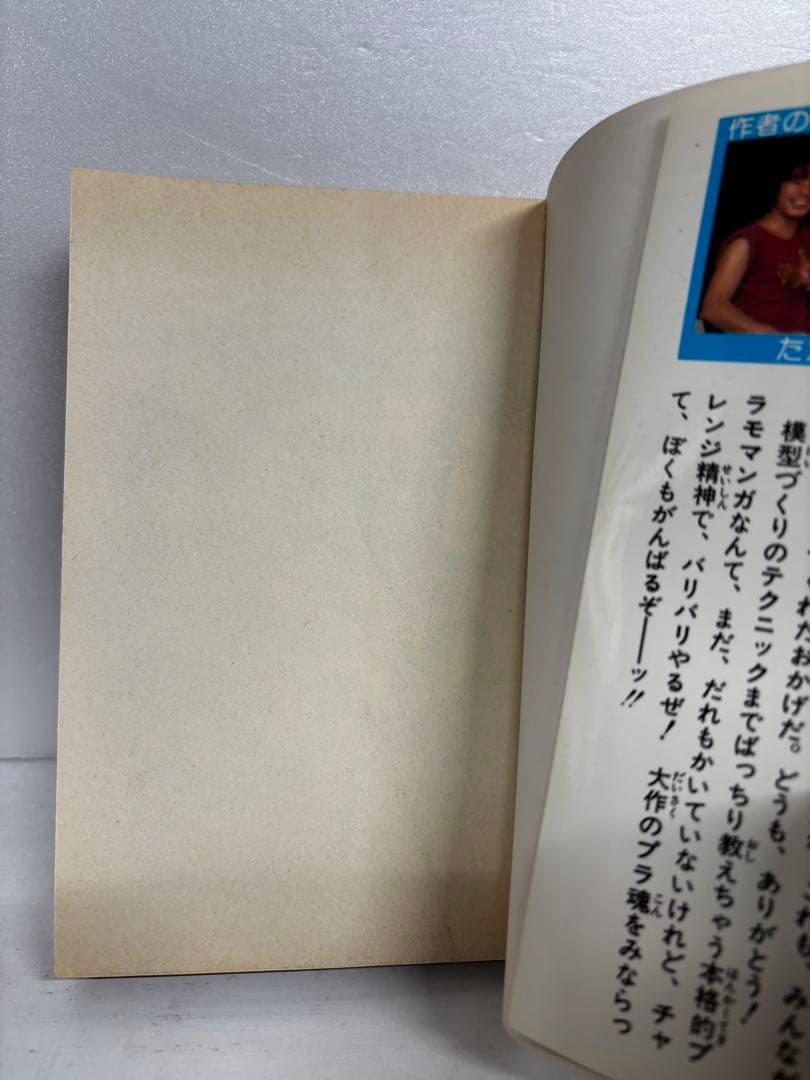 作者の
た
これも、みんな
れたおかげだ。どうも、ありがとう!
模型づくりのテクニックまでばっちり教えちゃう本格的プ
ラモマンガなんて、まだ、だれもかいていないけれど、チャ
レンジ精神で、バリバリやるぜ! 大作のプラ魂をみならっ
て、ぼくもがんばるぞ──ッ!!